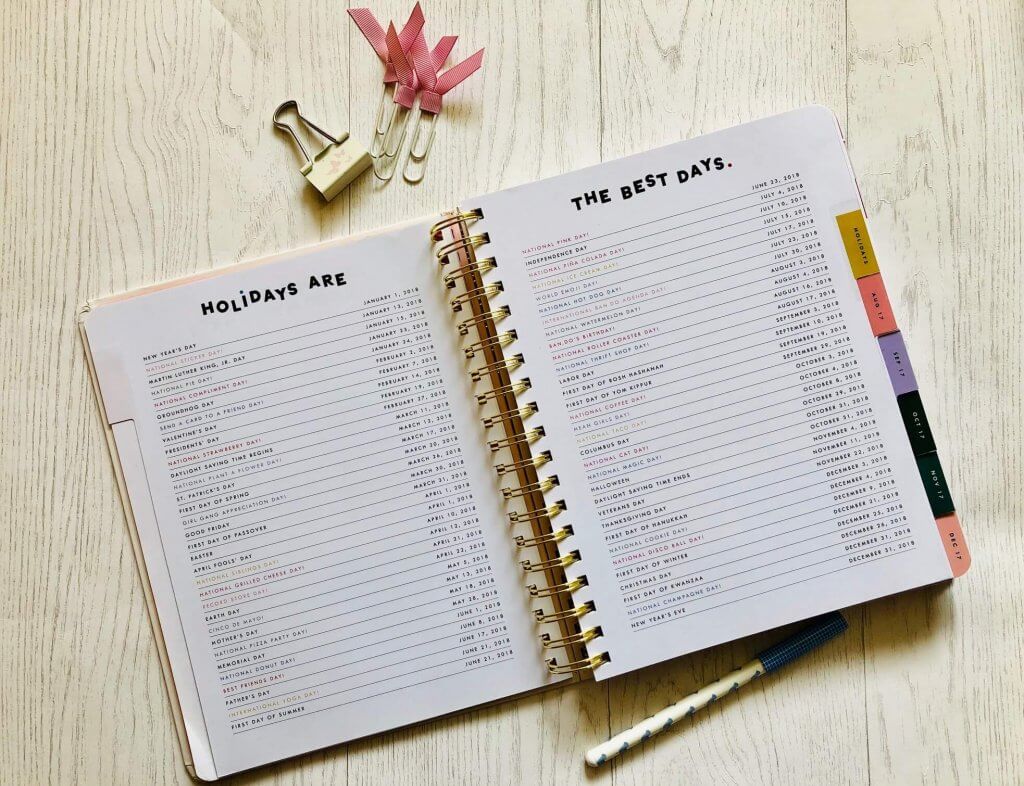 HOLIDAYS ARE
NEW YEAR'S DAY JANUARY 1, 2018
NATIONAL STICKER DAY! JANUARY 13, 2018
MARTIN LUTHER KING, JR. DAY JANUARY 15, 2018
NATIONAL PIE DAY! JANUARY 23, 2018
NATIONAL COMPLIMENT DAY! JANUARY 24, 2018
GROUNDHOG DAY FEBRUARY 2, 2018
SEND A CARD TO A FRIEND DAY! FEBRUARY 7, 2018
VALENTINE'S DAY FEBRUARY 14, 2018
PRESIDENTS' DAY FEBRUARY 19, 2018
NATIONAL STRAWBERRY DAY! FEBRUARY 27, 2018
DAYLIGHT SAVING TIME BEGINS MARCH 11, 2018
NATIONAL PLANT A FLOWER DAY! MARCH 12, 2018
ST. PATRICK'S DAY MARCH 17, 2018
FIRST DAY OF SPRING MARCH 20, 2018
GIRL GANG APPRECIATION DAY! MARCH 26, 2018
GOOD FRIDAY MARCH 30, 2018
FIRST DAY OF PASSOVER MARCH 31, 2018
EASTER APRIL 1, 2018
APRIL FOOLS' DAY APRIL 1, 2018
NATIONAL SIBLINGS DAY! APRIL 10, 2018
NATIONAL GRILLED CHEESE DAY! APRIL 12, 2018
RECORD STORE DAY! APRIL 21, 2018
EARTH DAY APRIL 22, 2018
CINCO DE MAYO! MAY 5, 2018
MOTHER'S DAY MAY 13, 2018
NATIONAL PIZZA PARTY DAY! MAY 18, 2018
MEMORIAL DAY MAY 28, 2018
NATIONAL DONUT DAY! JUNE 1, 2018
BEST FRIENDS DAY! JUNE 8, 2018
FATHER'S DAY JUNE 17, 2018
INTERNATIONAL YOGA DAY! JUNE 21, 2018
FIRST DAY OF SUMMER JUNE 21, 2018
THE BEST DAYS.
NATIONAL PINK DAY! JUNE 23, 2018
INDEPENDENCE DAY JULY 4, 2018
NATIONAL PIÑA COLADA DAY! JULY 10, 2018
NATIONAL ICE CREAM DAY! JULY 15, 2018
WORLD EMOJI DAY! JULY 17, 2018
NATIONAL HOT DOG DAY! JULY 23, 2018
INTERNATIONAL BAN.DO AGENDA DAY! JULY 30, 2018
NATIONAL WATERMELON DAY! AUGUST 3, 2018
BAN.DO'S BIRTHDAY! AUGUST 4, 2018
NATIONAL ROLLER COASTER DAY! AUGUST 16, 2018
NATIONAL THRIFT SHOP DAY! AUGUST 17, 2018
LABOR DAY SEPTEMBER 3, 2018
FIRST DAY OF ROSH HASHANAH SEPTEMBER 10, 2018
FIRST DAY OF YOM KIPPUR SEPTEMBER 19, 2018
NATIONAL COFFEE DAY! SEPTEMBER 29, 2018
MEAN GIRLS DAY! OCTOBER 3, 2018
NATIONAL TACO DAY! OCTOBER 4, 2018
COLUMBUS DAY OCTOBER 8, 2018
NATIONAL CAT DAY! OCTOBER 29, 2018
NATIONAL MAGIC DAY! OCTOBER 31, 2018
HALLOWEEN OCTOBER 31, 2018
DAYLIGHT SAVING TIME ENDS NOVEMBER 4, 2018
VETERANS DAY NOVEMBER 11, 2018
THANKSGIVING DAY NOVEMBER 22, 2018
FIRST DAY OF HANUKKAH DECEMBER 3, 2018
NATIONAL COOKIE DAY! DECEMBER 4, 2018
NATIONAL DISCO BALL DAY! DECEMBER 9, 2018
FIRST DAY OF WINTER DECEMBER 21, 2018
CHRISTMAS DAY DECEMBER 25, 2018
FIRST DAY OF KWANZAA DECEMBER 26, 2018
NATIONAL CHAMPAGNE DAY! DECEMBER 31, 2018
NEW YEAR'S EVE DECEMBER 31, 2018
HOLIDAYS
AUG 17
SEP 17
OCT 17
NOV 17
DEC 17